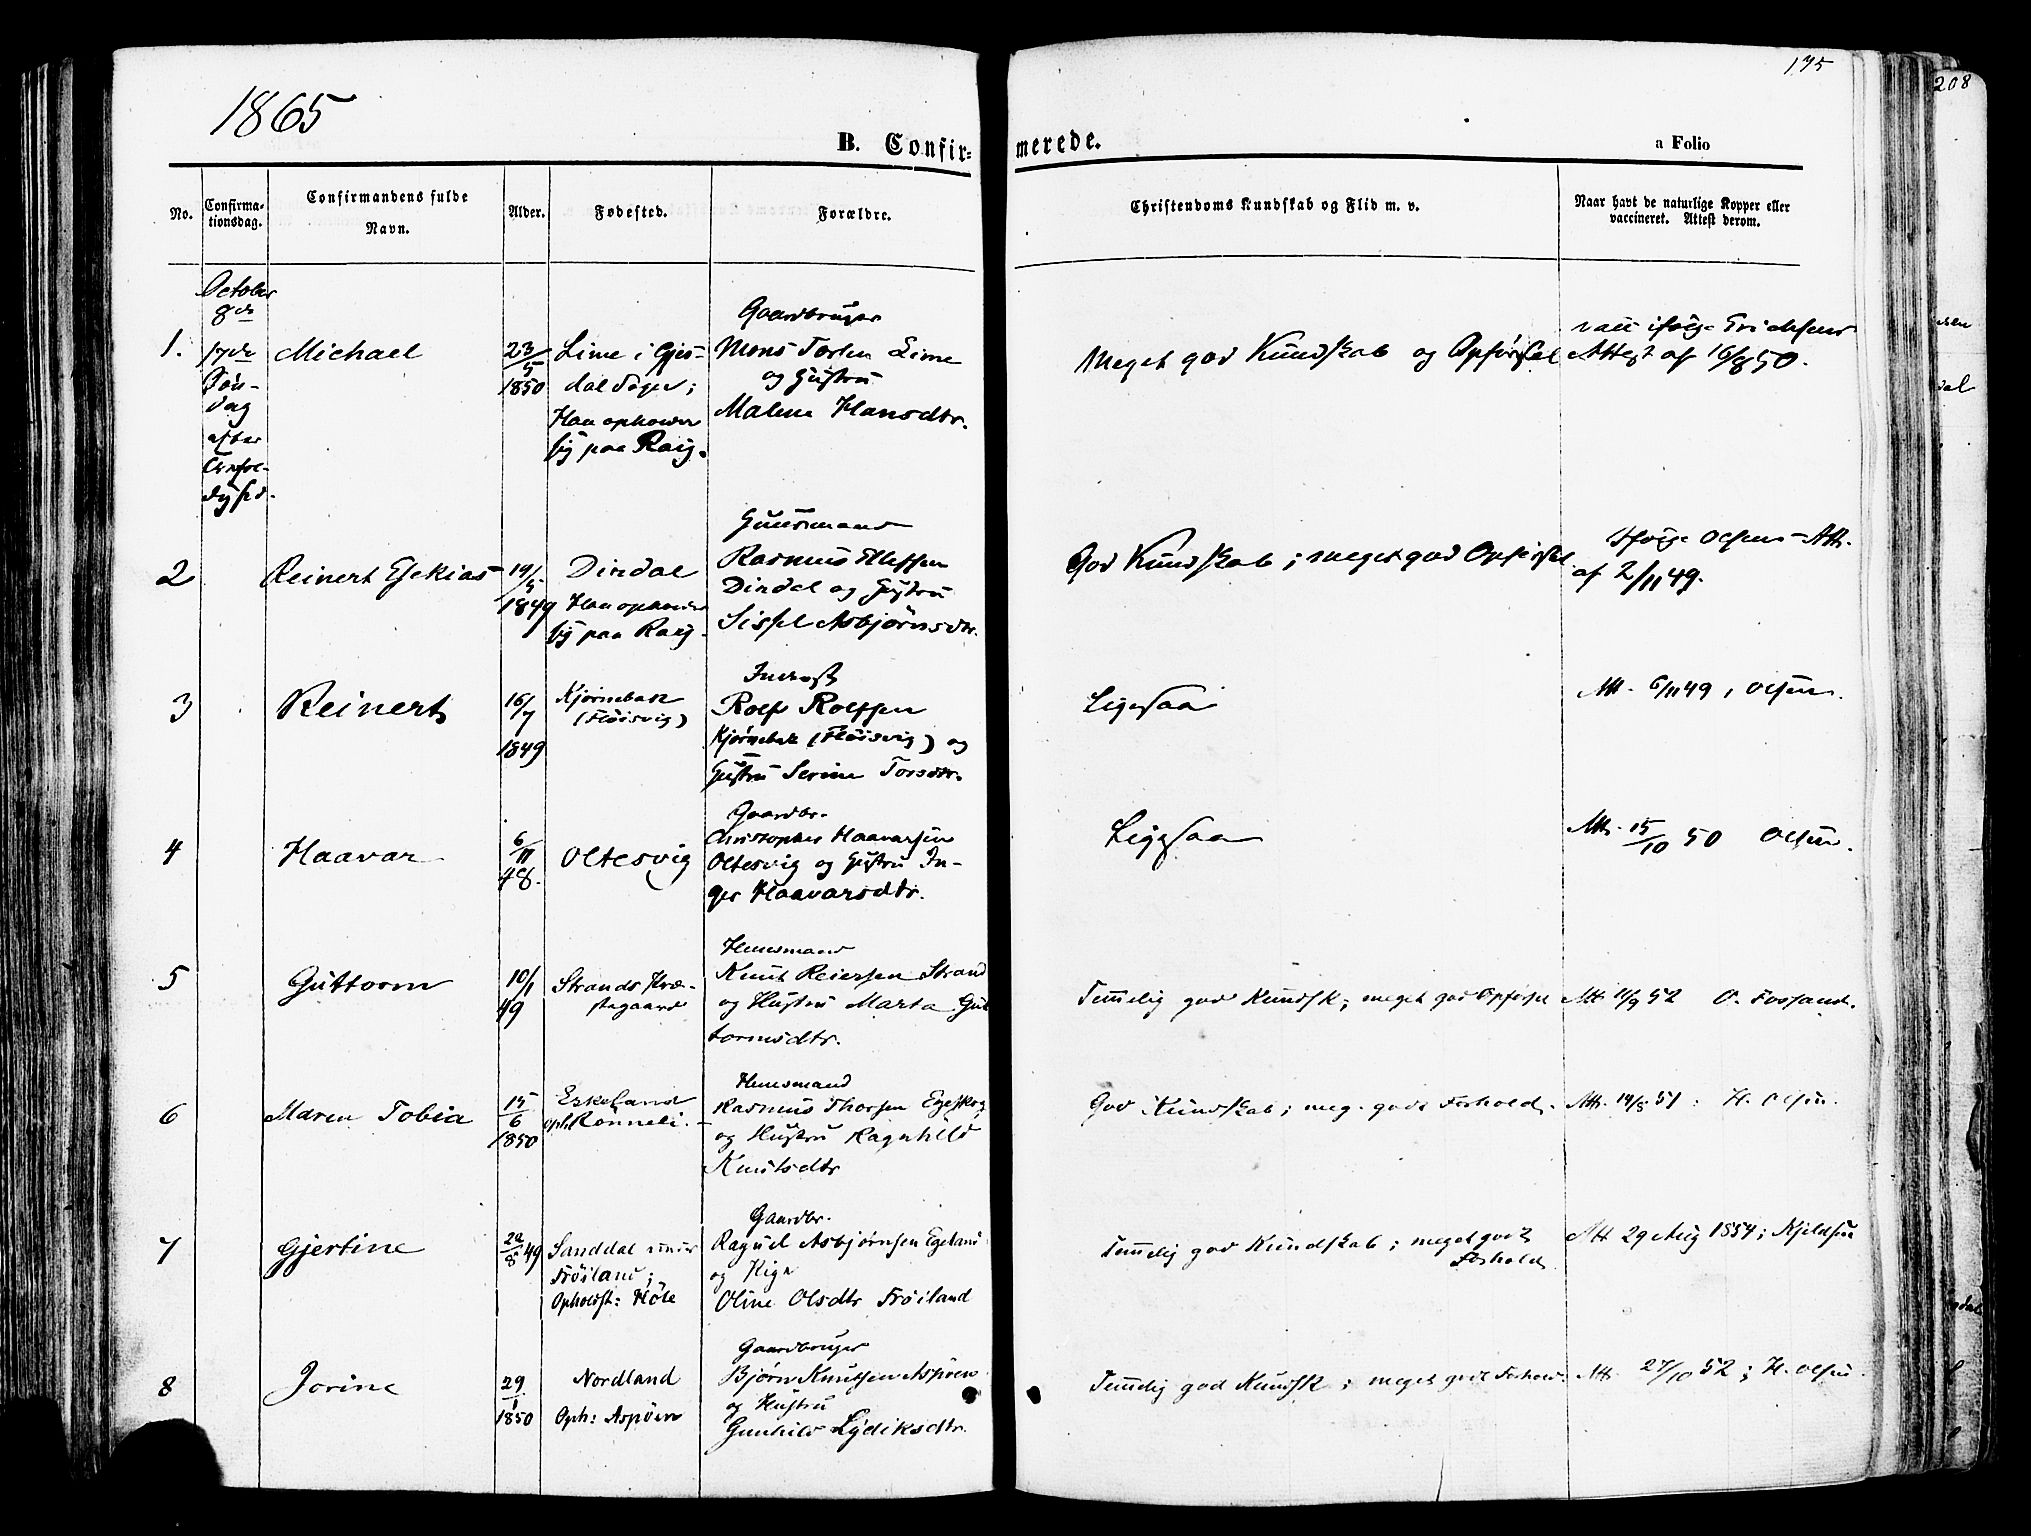 175
208
1865
B. Confir-
merede.
a Folio
No.
Confirma-
tionsdag.
Confirmandens fulde
Navn.
Alder.
Fødested.
Forældre.
Christendoms Kundskab og Flid m. v.
Naar havt de naturlige Kopper eller
vaccineret. Attest derom.
October
8de
17de
Søn-
dag
efter
1.
Michael
23/5
1850
Lime i Gjes-
dal Sogn;
Har ophold
sig paa Raig.
Gaardbruger
Mons Torsen Lime
og Hustru
Malene Hansdtr.
Meget god Kundskab og Opførsel
vacc ifølge Erichsens
Attest af 16/8 50.
2
Reinert Esekias
19/5
1849
Dirdal
Har ophold
sig paa Raig.
Huusmand
Rasmus
Dirdal og Hustru
Sissel Asbjørnsdtr.
God Kundskab; meget god Opførsel
Ifølge Olsens Att.
af 2/11 49.
3
Reinert
16/7
1849
Kjørnebak
(Fløisvig)
Inderst
Rolf Rolfsen
Kjørnebak (Fløisvig) og
Hustru Serine Torsdtr.
Ligesaa
Att. 6/11 49, Olsen.
4
Haavar
6/11
48.
Oltesvig
Gaardbr.
Christopher Haavarsen
Oltesvig og Hustru In-
ger Haavarsdtr.
Ligesaa
Att. 15/10 50 Olsen.
5
Guttorm
10/1
49
Strands Præ-
stegaard
Huusmand
Knut Reiersen Strand
og Hustru Marta Gut
tormsdtr.
Temmelig god Kundsk; meget god Opførsel
Att. 11/9 52 O. Fossand.
6
Maren Tobia
15/6
1850
Eskeland
oph. Rønneli.
Huusmand
Rasmus Thorsen Egeskog
og Hustru Ragnhild
Knutsdtr
God Kundskab; meg. godt Forhold.
Att. 19/8 51: H. Olsen.
7
Gjertine
22/8 49
Sanddal under
Frøiland;
Opholdst: Høle
Gaardbr.
Raguel Asbjørnsen Egeland
og Pige
Oline Olsdtr Frøiland
Temmelig god Kundskab; meget godt
Forhold
Att 29 Aug 1854; Kjeldsen
8
Jorine
29/1
1850
Nordland
Oph: Aspøen
Gaardbruger
Bjørn Knutsen Aspøen
og Hustru
Gunhild Lydiksdtr.
Temmelig god Kundsk; meget godt Forhold.
Att. 27/10 52; H. Olsen.